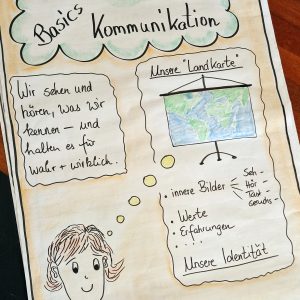 Basics
Kommunikation
Wir sehen und
hören, was wir
kennen – und
halten es für
wahr + wirklich.
Unsere "Landkarte"
• innere Bilder
Seh-
Hör
Tast
Geruchs-
• Werte
• Erfahrungen
• . . .
Unsere Identität